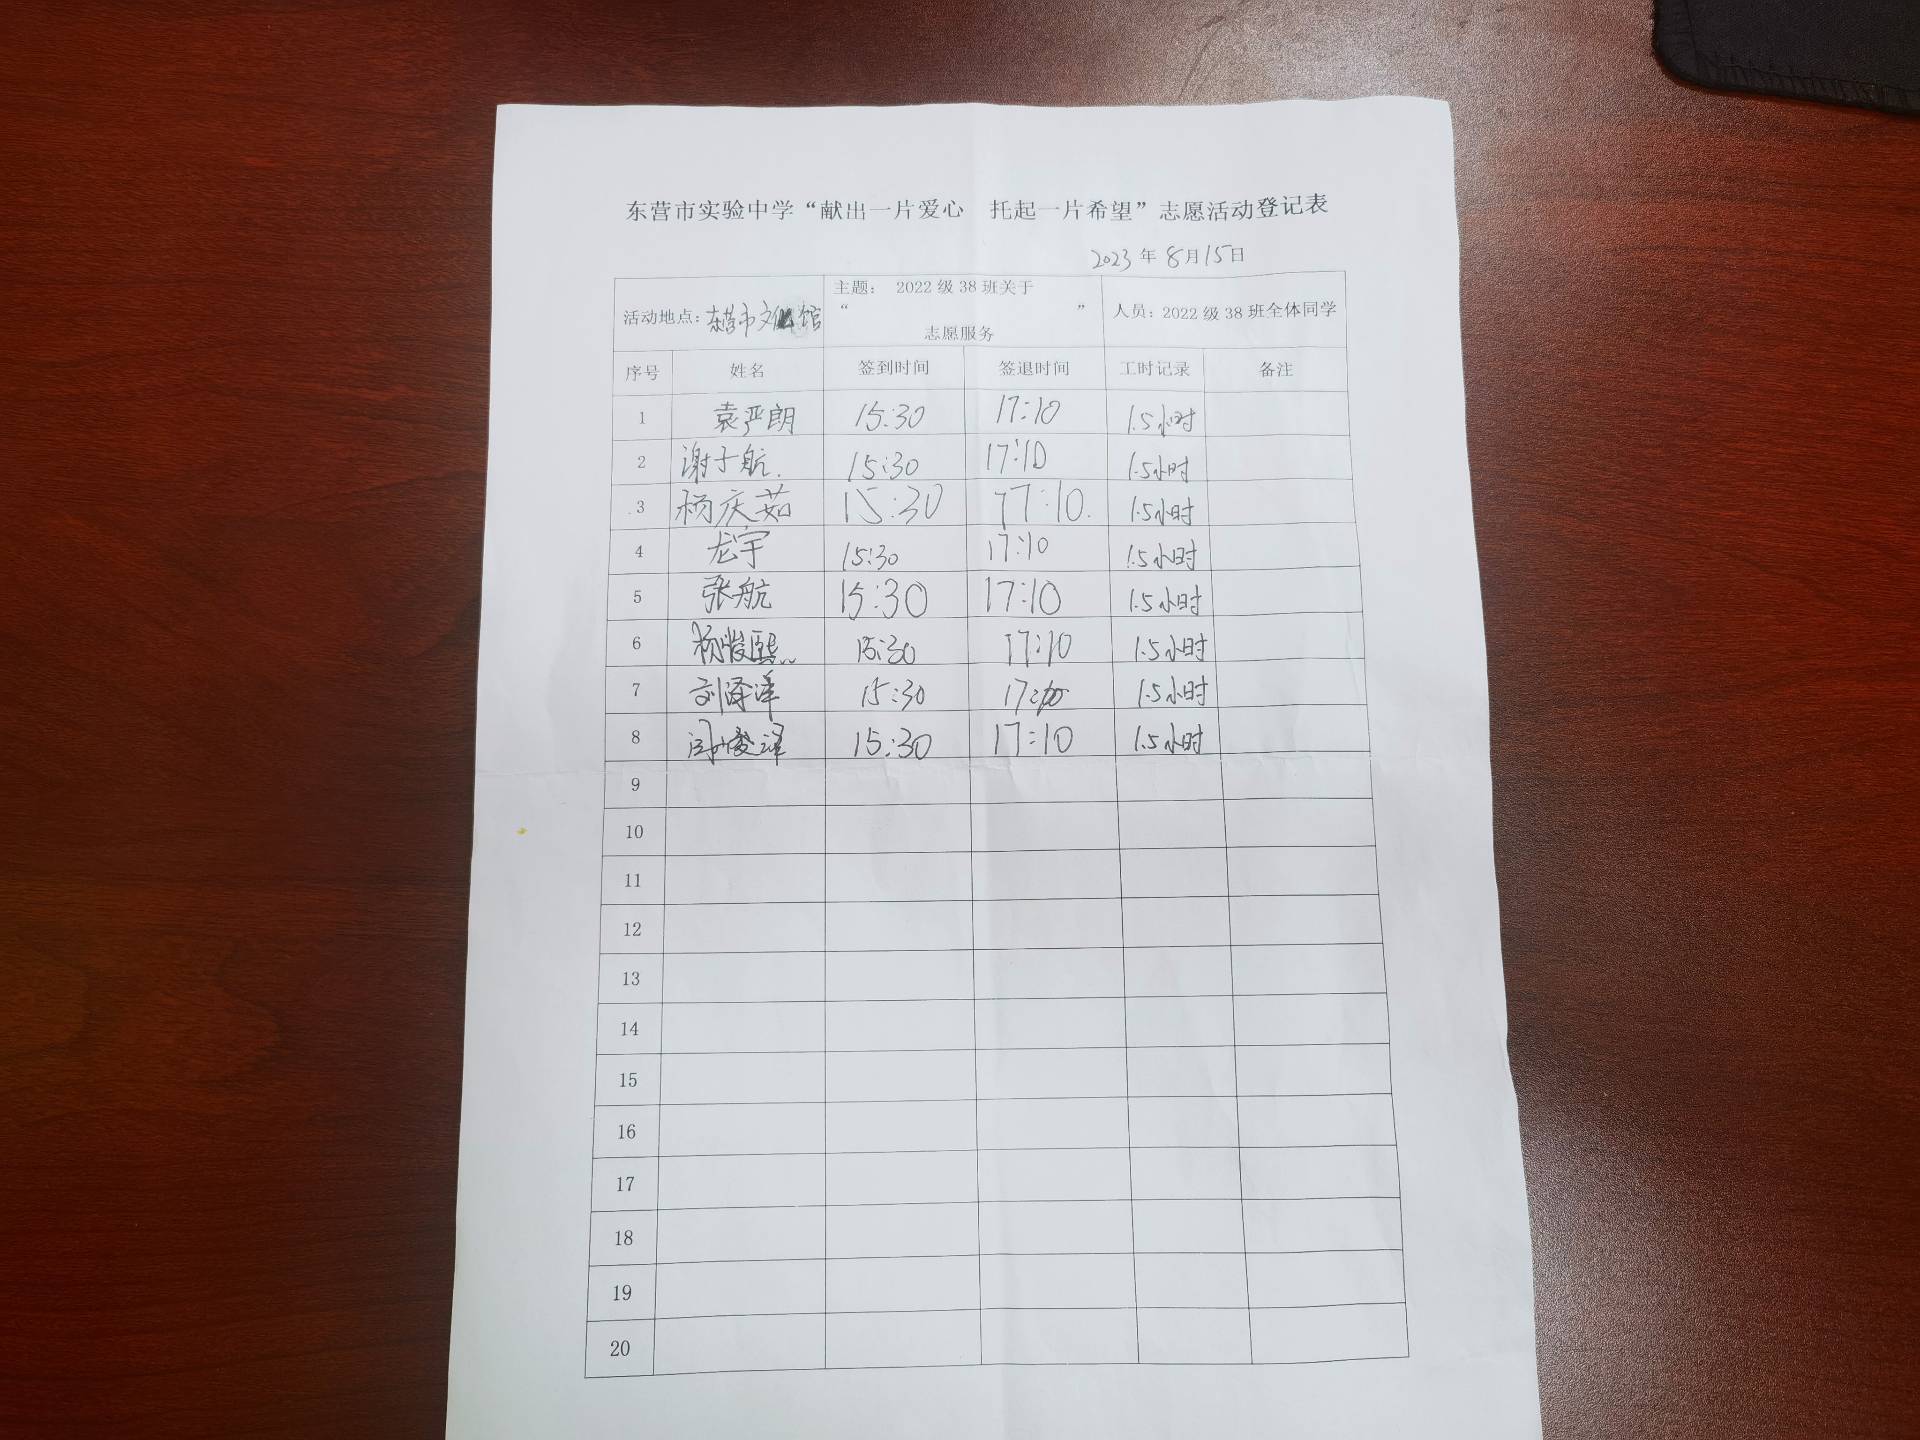 东营市实验中学“献出一片爱心 托起一片希望”志愿活动登记表
2023年8月15日
活动地点：东营市文化馆
主题： 2022级38班关于
“ ”
志愿服务
人员：2022级38班全体同学
序号 姓名 签到时间 签退时间 工时记录 备注
1 袁严朗 15:30 17:10 1.5小时
2 谢子航. 15:30 17:10 1.5小时
3 杨庆茹 15:30 17:10. 1.5小时
4 龙宇 15:30 17:10 1.5小时
5 张航 15:30 17:10 1.5小时
6 杨骏熙 15:30 17:10 1.5小时
7 刘泽洋 15:30 17:10 1.5小时
8 15:30 17:10 1.5小时
9
10
11
12
13
14
15
16
17
18
19
20